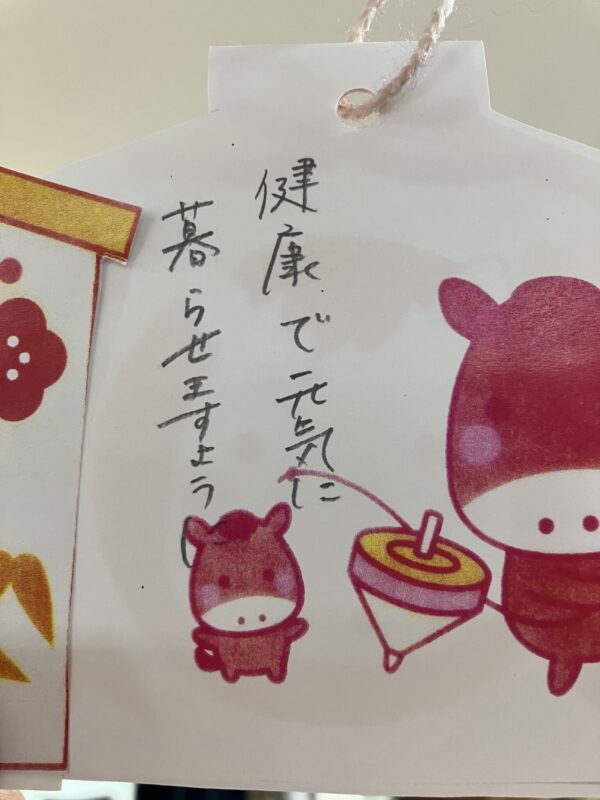 健康で元気に
暮らせますように